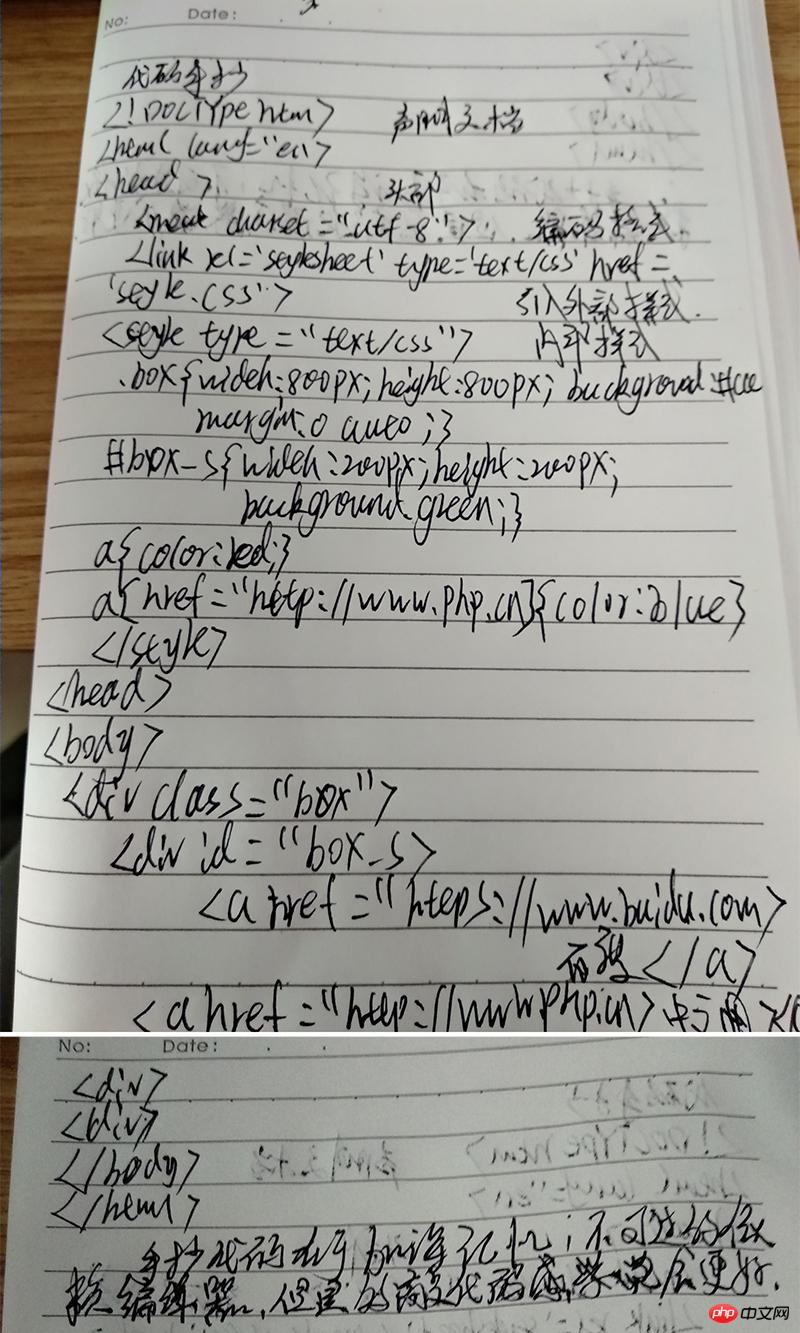 No: Date:
代码手抄
<!DOCTYPE html> 声明文档
<html lang="en>
<head> 头部
<meat charset="utf-8"> 编码格式.
<link rel='stylesheet' type='text/css' href=
'style.css"> 引入外部样式.
<style type="text/css"> 内部样式
.box{width:800px; height:800px; background:#cce
margin:0 auto;}
#box_s{width:200px; height:200px;
background.green;}
a{color:red;}
a[href="http://www.php.cn]{color:blue}
</style>
<head>
<body>
<div class="box">
<div id="box_s>
<a href="https://www.buidu.com>
百度</a>
<a href="http://www.php.cn>
No: Date:
<div>
<div>
</body>
</html>
手抄代码 记忆;不可过的依
赖编辑器,但 代码 会更好.
php 中文网